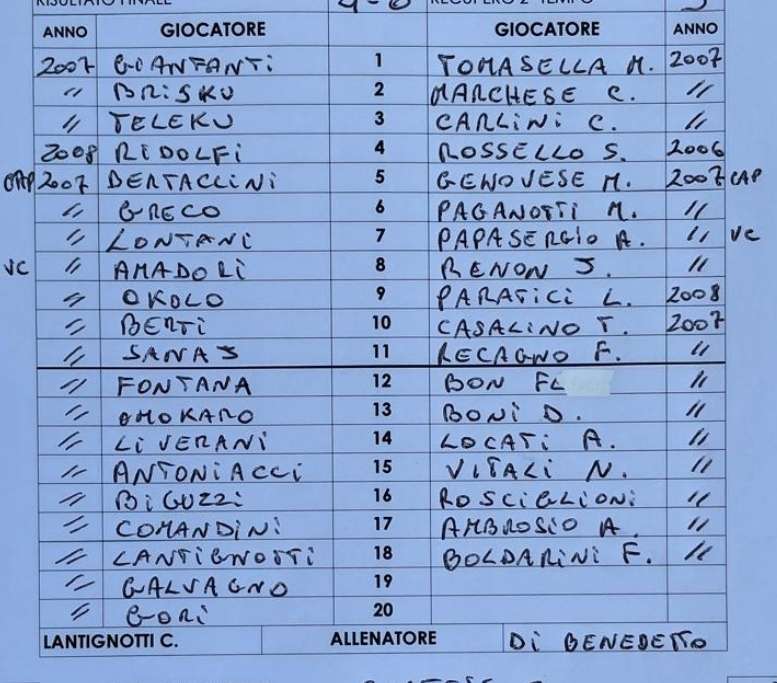 RISULTATO FINALE 4-0 RECUPERO 2° TEMPO
ANNO GIOCATORE GIOCATORE ANNO
2007 GIANFANTI 1 TOMASELLA M. 2007
" BRISKU 2 MARCHESE C. "
" TELEKU 3 CARLINI C. "
2008 RIDOLFI 4 ROSSELLO S. 2006
CAP 2007 BERTACCINI 5 GENOVESE M. 2007 CAP
" GRECO 6 PAGANOTTI M. "
" LONTANI 7 PAPASERGIO A. " VC
VC " AMADORI 8 RENON J. "
" OKOLO 9 PARATICI L. 2008
" BERTI 10 CASALINO T. 2007
" SANAS 11 RECAGNO F. "
" FONTANA 12 BON "
" OMOKARO 13 BONI D. "
" LIVERANI 14 LOCATI A. "
" ANTONIACCI 15 VITALI N. "
" BIGUZZI 16 ROSCIGLIONI "
" COMANDINI 17 AMBROSIO A. "
" LANTIGNOTTI 18 BOLDARINI F. "
" GALVAGNO 19
" GORI 20
LANTIGNOTTI C. ALLENATORE DI BENEDETTO